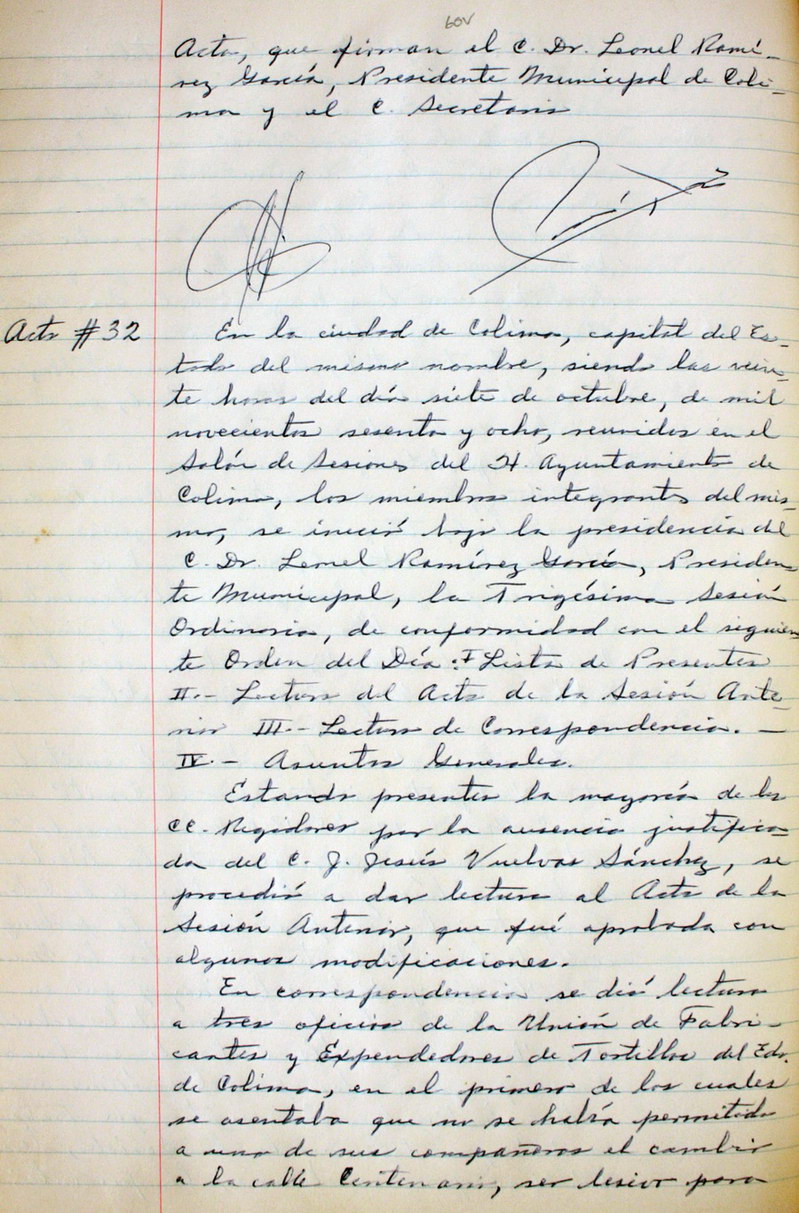 60V
Acta, que firman el C. Dr. Leonel Ramí-
rez García, Presidente Municipal de Coli-
ma y el C. Secretario
Acta #32
En la ciudad de Colima, capital del Es-
tado del mismo nombre, siendo las vein-
te horas del día siete de octubre, de mil
novecientos sesenta y ocho, reunidos en el
Salón de Sesiones del H. Ayuntamiento de
Colima, los miembros integrantes del mis-
mo, se inició bajo la presidencia del
C. Dr. Leonel Ramírez García, Presiden-
te Municipal, la Trigésima Sesión
Ordinaria, de conformidad con el siguien
te Orden del Día: I Lista de Presentes
II.- Lectura del Acta de la Sesión Ante-
rior III.- Lectura de Correspondencia. -
IV.- Asuntos Generales.
Estando presentes la mayoría de los
CC. Regidores por la ausencia justifica-
da del C. J. Jesús Vuelvas Sánchez, se
procedió a dar lectura al Acta de la
Sesión Anterior, que fué aprobada con
algunas modificaciones.
En correspondencia se dió lectura
a tres oficios de la Unión de Fabri-
cantes y Expendedores de Tortillas del Edo.
de Colima, en el primero de los cuales
se asentaba que no se había permitido
a uno de sus compañeros el cambio
a la calle Centenario, ser lesivo para